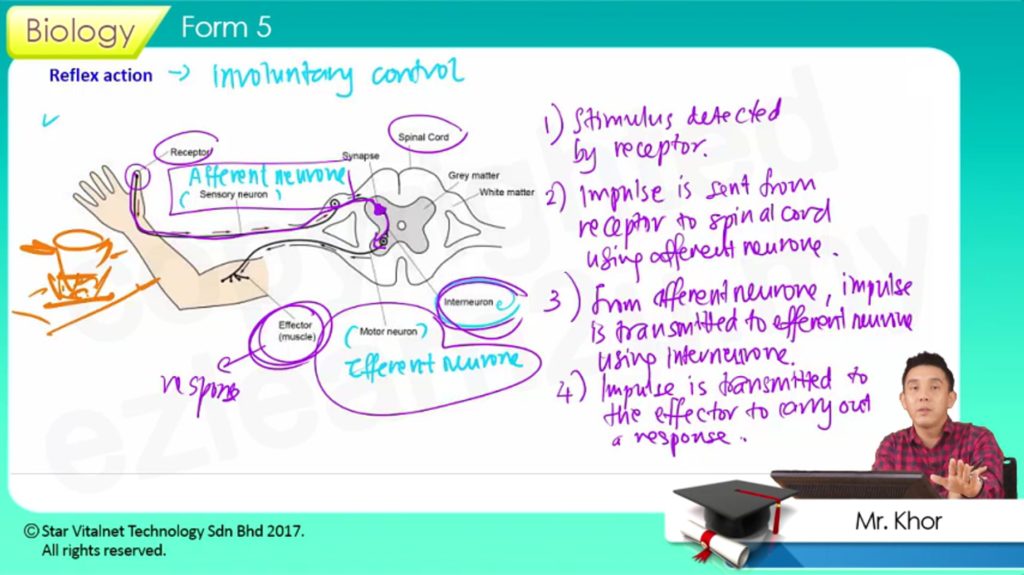 Biology
Form 5
Reflex action → involuntary control
Receptor
Afferent neurone
( Sensory neuron )
Synapse
Spinal Cord
Grey matter
White matter
Interneuron e
Effector
(muscle)
( Motor neuron )
Efferent neurone
response
1) Stimulus detected
by receptor.
2) Impulse is sent from
receptor to spinal cord
using afferent neurone.
3) from afferent neurone, impulse
is transmitted to efferent neurone
using interneurone.
4) Impulse is transmitted to
the effector to carry out
a response.
Mr. Khor
© Star Vitalnet Technology Sdn Bhd 2017.
All rights reserved.